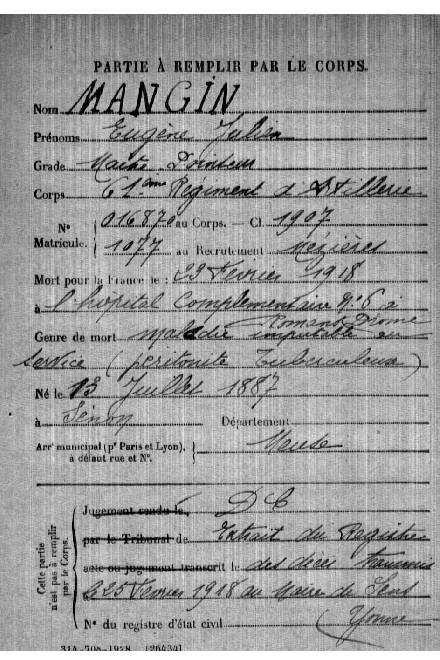 PARTIE À REMPLIR PAR LE CORPS.
Nom MANGIN
Prénoms Eugène Julien
Grade Maitre Pointeur
Corps 61ème Régiment d'Artillerie
N° Matricule. 016870 au Corps. — Cl. 1907
1077 au Recrutement Mézières
Mort pour la France le 23 Février 1918
à l'hôpital complémentaire N° 6 à
Romans Drôme
Genre de mort maladie imputable au
service (péritonite tuberculeuse)
Né le 13 Juillet 1887
à Senon Département
Arr<sup>t</sup> municipal (p<sup>r</sup> Paris et Lyon), à défaut rue et N°. Meuse
Cette partie n'est pas à remplir par le Corps.
Jugement rendu le DC
par le Tribunal de Extrait du Registre
acte ou jugement transcrit le des décès transmis
le 25 Février 1918 au Maire de Sens
(Yonne)
N° du registre d'état civil